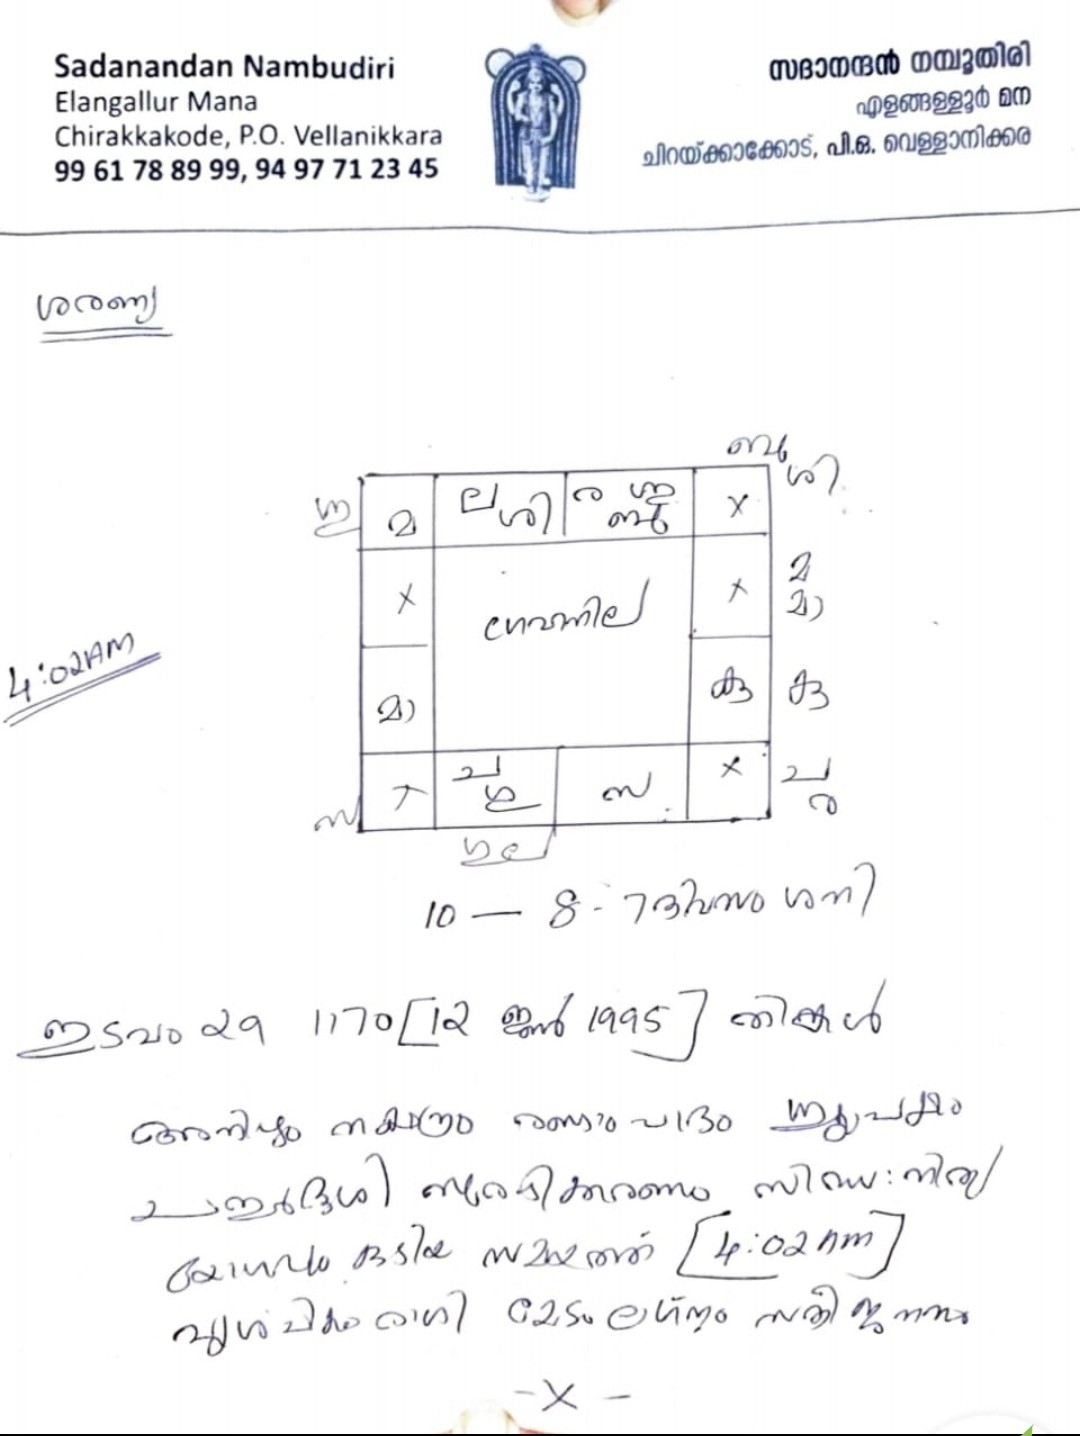 Sadanandan Nambudiri
Elangallur Mana
Chirakkakode, P.O. Vellanikkara
99 61 78 89 99, 94 97 71 23 45
സദാനന്ദൻ നമ്പൂതിരി
എളങ്ങള്ളൂർ മന
ചിറയ്ക്കാക്കോട്, പി.ഒ. വെള്ളാനിക്കര
ശരണ്യ
ബു
ശി
ഗു മ ല ശി ര ശു ബു x
x x മ മാ
4:02AM
മാ കു കു
ച x ച ര
സ സ
10 — 8 - 7 ദിവസം ശനി
ഇടവം 29 1170 [12 ജൂൺ 1995] തിങ്കൾ
അനിഴം നക്ഷത്രം രണ്ടാം പാദം
ചതുർദ്ദശി
കൂടിയ സമയത്ത് [4:02 Am]
വൃശ്ചികം രാശി മേടം ലഗ്നം
-X-